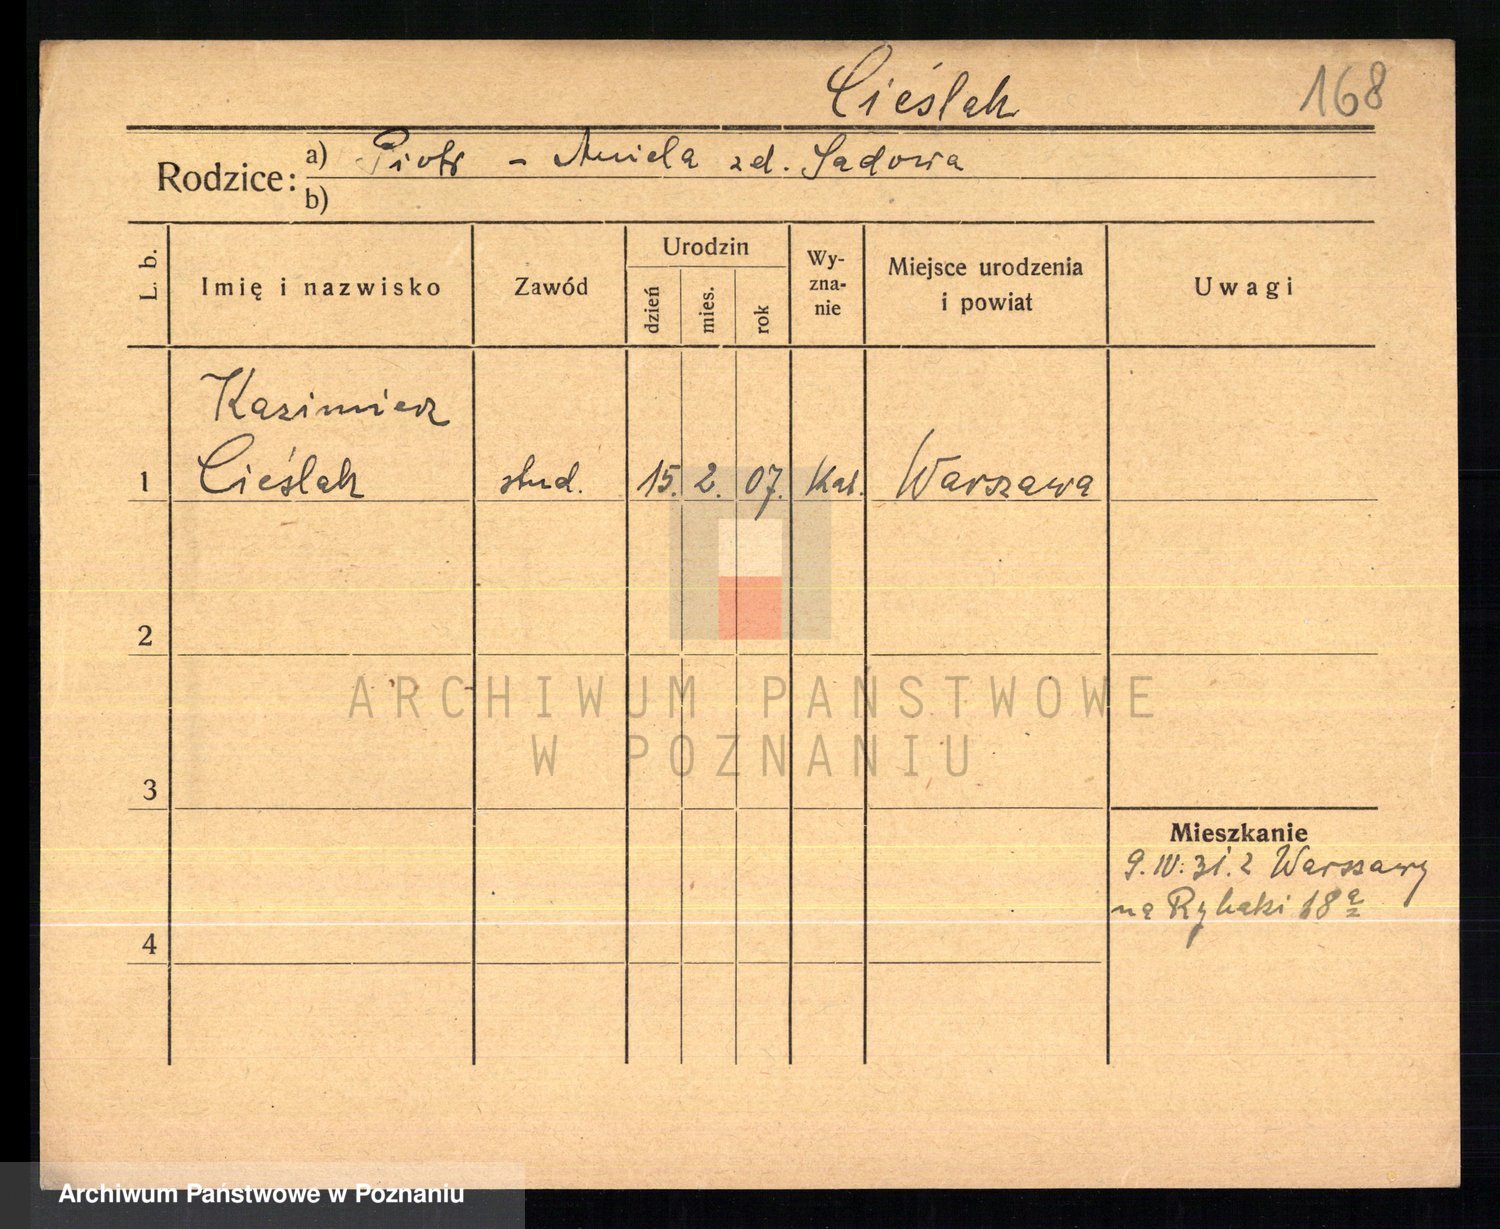 Cieślak 168
Rodzice: a) Piotr - Aniela zd. Sadowa
b)
L. b. Imię i nazwisko Zawód Urodzin dzień mies. rok Wy-zna-nie Miejsce urodzenia i powiat Uwagi
Kazimierz
1 Cieślak stud. 15. 2. 07. Kat. Warszawa
2
ARCHIWUM PAŃSTWOWE
W POZNANIU
3
Mieszkanie
9.IV.31. z Warszawy
na Rybaki 18a
4
Archiwum Państwowe w Poznaniu